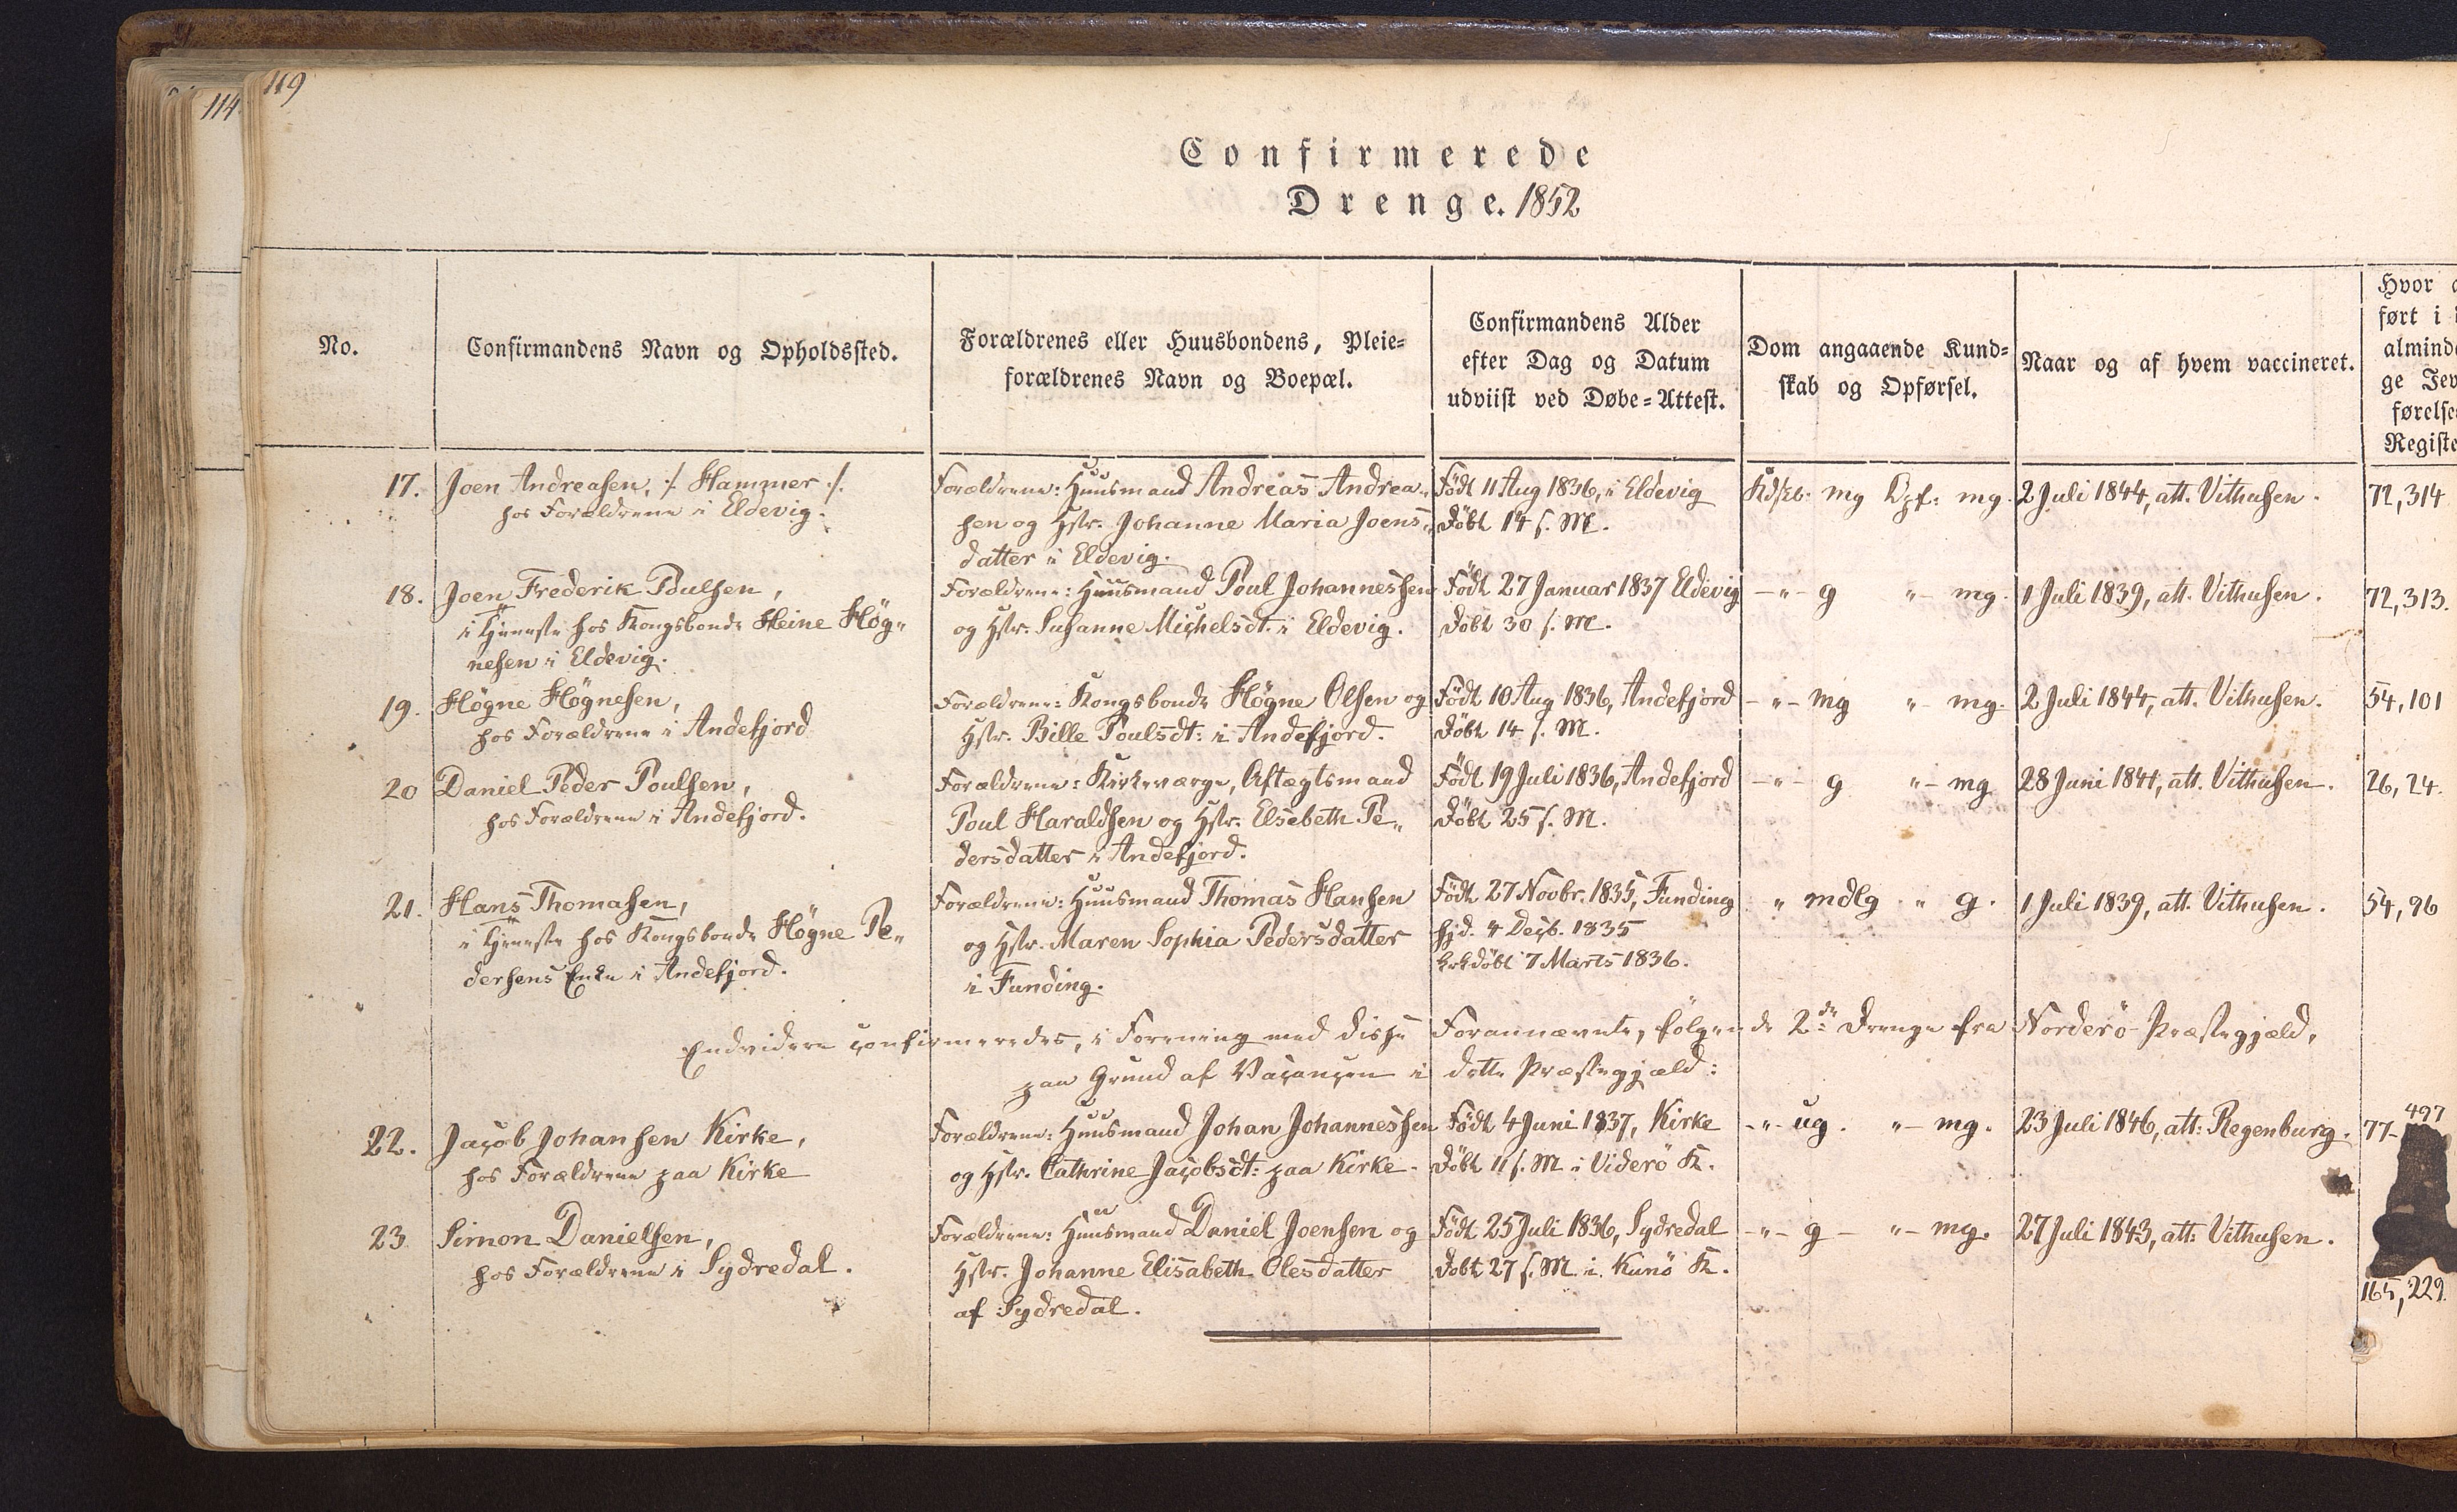 119
114.
Confirmerede
Drenge. 1852
No.
Confirmandens Navn og Opholdssted.
Forældrenes eller Huusbondens, Pleie=
forældrenes Navn og Boepæl.
Confirmandens Alder
efter Dag og Datum
udviist ved Døbe=Attest.
Dom angaaende Kund=
skab og Opførsel.
Naar og af hvem vaccineret.
Hvor
ført i
almind
ge Jev
førelse
Registe
17.
Joen Andreasen, ·/. Hammer ·/.
hos Forældrene i Eldevig.
Forældrene: Huusmand Andreas Andrea„
sen og Hstr. Johanne Maria Joens„
datter i Eldevig.
Født 11 Aug 1836, i Eldevig
Døbt 14 s. M.
Kdskb: mg Opf: mg.
2 Juli 1844, att. Vithusen.
72, 314
18.
Joen Frederik Poulsen,
i Tjeneste hos Kongsbonde Heine Høg„
nesen i Eldevig.
Forældrene: Huusmand Poul Johannessen
og Hstr. Susanne Michelsdt. i Eldevig.
Født 27 Januar 1837 Eldevig
Døbt 30 s. M.
-"- g "- mg.
1 Juli 1839, att. Vithusen.
72, 313.
19.
Høgne Høgnesen,
hos Forældrene i Andefjord
Forældrene: Kongsbonde Høgne Olsen og
Hstr. Bille Poulsdt: i Andefjord.
Født 10 Aug 1836, Andefjord
Døbt 14 s. M.
-"- mg "- mg.
2 Juli 1844, att. Vithusen.
54, 101
20
Daniel Peder Poulsen,
hos Forældrene i Andefjord.
Forældrene: Kirkeværge, Aftægtsmand
Poul Haraldsen og Hstr. Elsebeth Pe„
dersdatter i Andefjord.
Født 19 Juli 1836, Andefjord
Døbt 25 s. M.
-"- g "- mg
28 Juni 1841, att. Vithusen.
26, 24.
21.
Hans Thomasen,
i Tjeneste hos Kongsbonde Høgne Pe„
dersens Enke i Andefjord.
Forældrene: Huusmand Thomas Hansen
og Hstr. Maren Sophia Pedersdatter
i Funding.
Født 27 Novbr. 1835, Funding
hjd. 4 Decb. 1835
kirkdøbt 7 Marts 1836.
" mdlg " g.
1 Juli 1839, att. Vithusen.
54, 96
Endvidere confirmeredes, i Forening med disse Forannævnte, følgende 2de Drenge fra Norderø Præstegjæld,
paa Grund af Vacancen i dette Præstegjæld:
22.
Jacob Johansen Kirke,
hos Forældrene paa Kirke
Forældrene: Huusmand Johan Johannessen
og Hstr. Cathrine Jacobsdt: paa Kirke.
Født 4 Juni 1837, Kirke
Døbt 11 s. M. i Viderø K.
-"- ug. "- mg.
23 Juli 1846, att: Regenburg.
77- 497
23
Simon Danielsen,
hos Forældrene i Sydredal.
Forældrene: Huusmand Daniel Joensen og
Hstr. Johanne Elisabeth Olesdatter
af Sydredal.
Født 25 Juli 1836, Sydredal
Døbt 27 s. M. i Kunø K.
-"- g - "- mg.
27 Juli 1843, att: Vithusen.
165, 229.